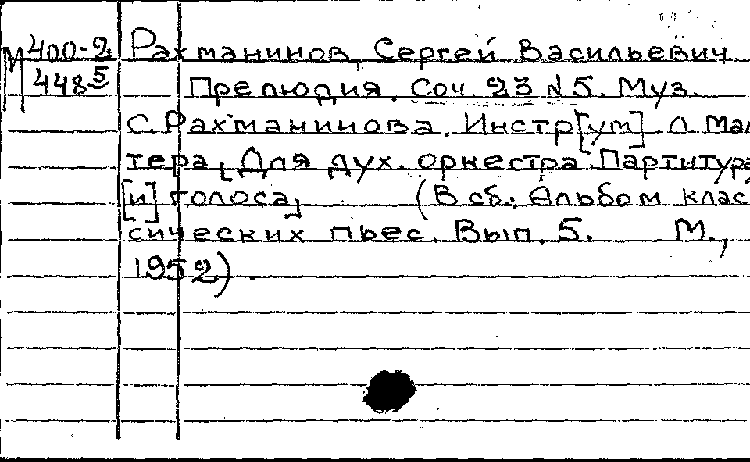 М 400-2 Рахманинов, Сергей Васильевич
448-5 Прелюдия. Соч 23 №5. Муз.
С. Рахманинова. Инстр[ум] Л. Мал
тера, [Для дух. оркестра. Партитура
[и] голоса] (В сб.: Альбом клас
сических пьес. Вып. 5. М.,
1952).